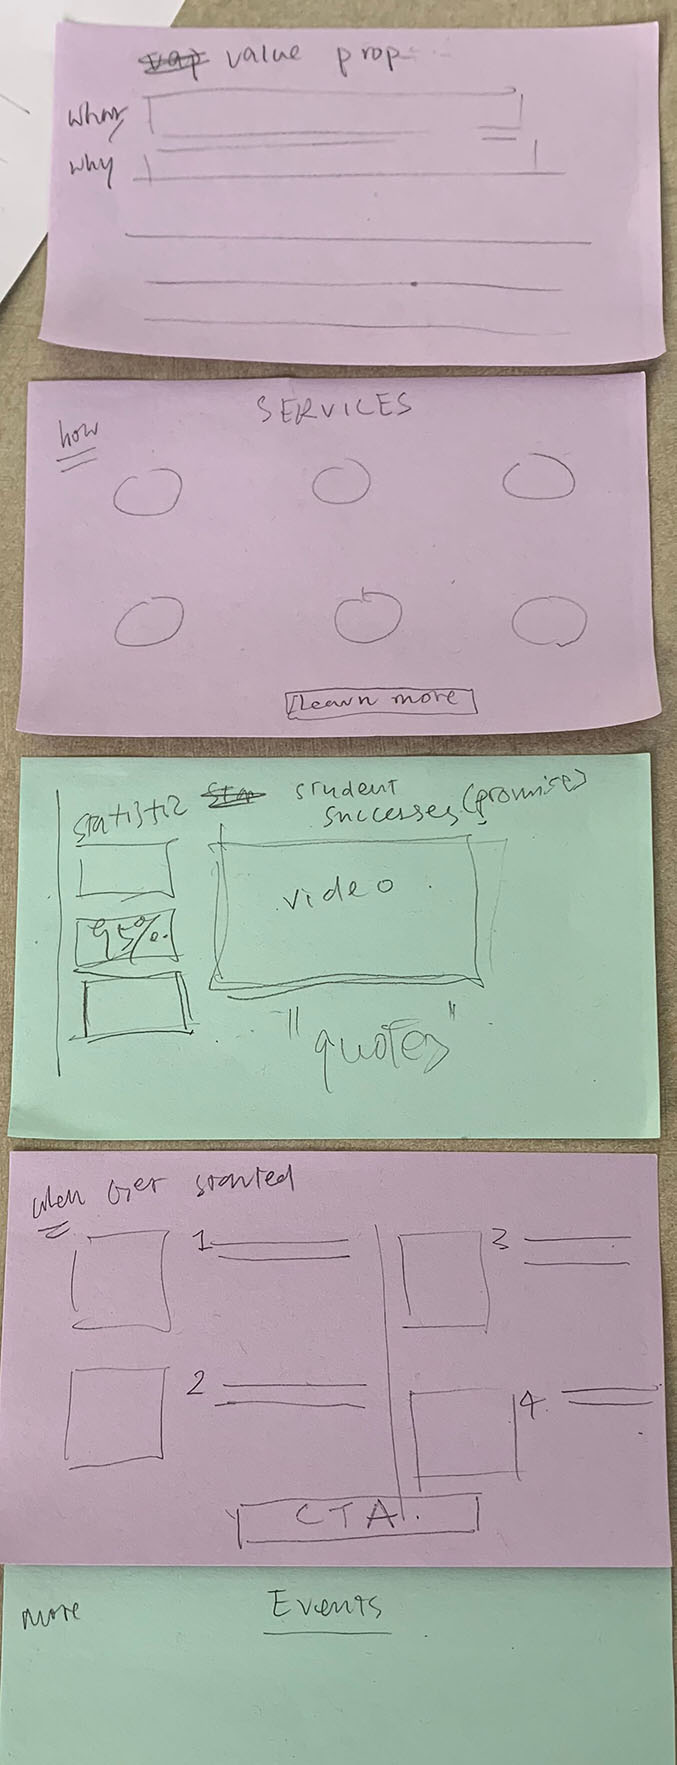 value prop
what
why
SERVICES
how
Learn more
statistiz
student
successes (promise)
video
95%
"quotes"
when Get started
1
3
2
4.
CTA.
more
Events